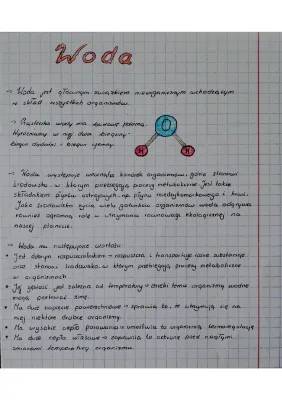 Woda
→ Woda jest głównym związkiem nieorganicznym wchodzącym
w skład wszystkich organizmów.
→ Cząsteczka wody ma
Wyróżniamy w niej dwa bieguny:
biegun dodatni i biegun ujemny.
O
H H
→ Woda występuje wewnątrz komórek organizmów, gdzie stanowi
środowisko w którym przebiegają procesy metaboliczne. Jest także
składnikiem płynów ustrojowych np. płynu międzykomórkowego i krwi.
Jako środowisko życia wielu gatunków organizmów woda odgrywa
również ogromną rolę w utrzymaniu równowagi ekologicznej na
naszej planecie.
→ Woda ma następujące właściwości:
• Jest dobrym rozpuszczalnikiem → rozpuszcza i transportuje różne substancje
oraz stanowi środowisko w którym przebiegają procesy metaboliczne
w organizmach.
• Jej gęstość jest zależna od temperatury → dzięki temu organizmy wodne
mogą przetrwać zimę.
• Ma duże napięcie powierzchniowe → sprawia to, że utrzymują się na
niej niektóre drobne organizmy.
• Ma wysokie ciepło parowania → umożliwia to organizmom termoregulację
• Ma duże ciepło właściwe → zapewnia to ochronę przed nagłymi
zmianami temperatury organizmu.